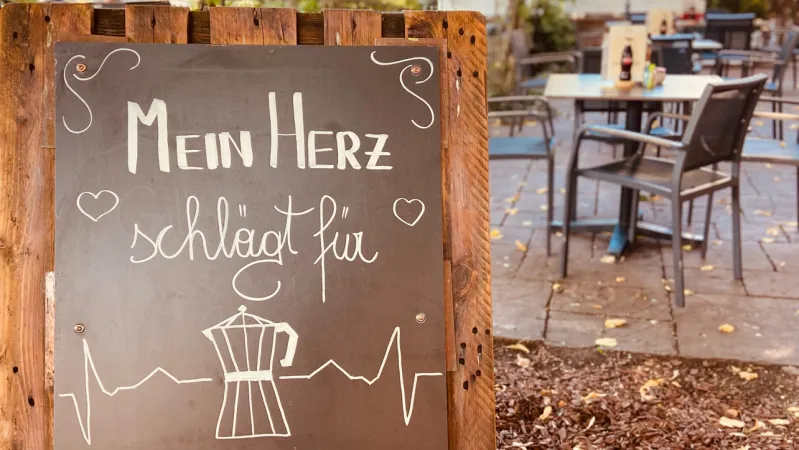 MEIN HERZ
schlägt für